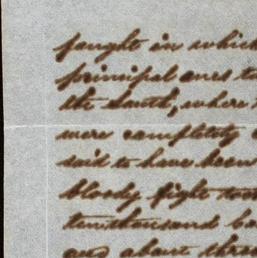 fought in which
principal ones to
the South, where
were completely
said to have been
bloody fight took
ten thousand
and about three